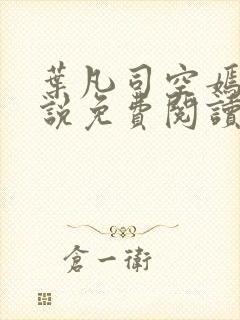 葉凡司空嫣
說免費閱讀
倉一衛